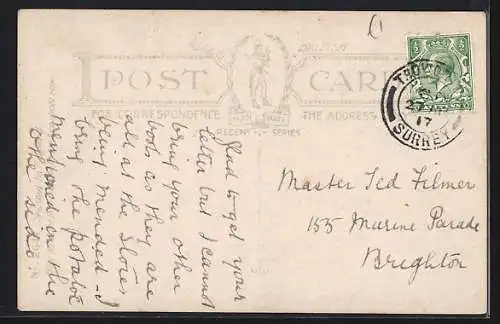 POST CARD
FOR CORRESPONDENCE
THE ADDRESS
REGENT SERIES
SURREY
17
Glad to get your
letter but I cannot
bring your other
boots as they are
all at the Stores
being mended - I
bring the potatoe
mentioned on the
other side
Master Ted Filmer
155 Marine Parade
Brighton